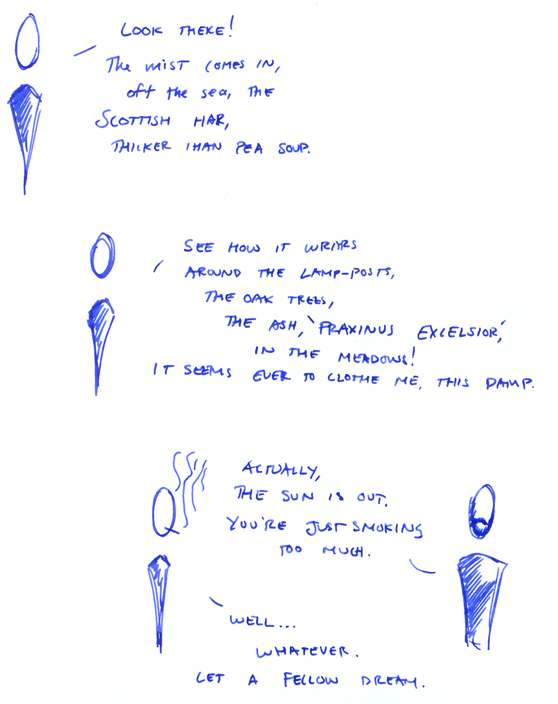 LOOK THERE!
THE MIST COMES IN,
OFF THE SEA, THE
SCOTTISH HAR,
THICKER THAN PEA SOUP.
SEE HOW IT WRAPS
AROUND THE LAMP-POSTS,
THE OAK TREES,
THE ASH, 'FRAXINUS EXCELSIOR,'
IN THE MEADOWS!
IT SEEMS EVER TO CLOTHE ME, THIS DAMP.
ACTUALLY,
THE SUN IS OUT.
YOU'RE JUST SMOKING
TOO MUCH.
WELL...
WHATEVER.
LET A FELLOW DREAM.